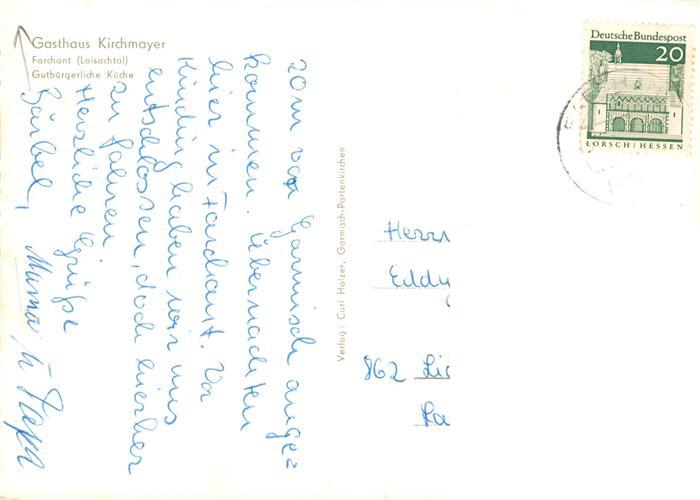 Gasthaus Kirchmayer
Farchant (Loisachtal)
Gutbürgerliche Küche
20m vor Garmisch angek
kommen. Übernachten
hier in Farchant. Vor
Kinding haben wir uns
entschlossen, doch hierher
zu fahren
Herzliche Grüße
Bärbel, Mama u Papa
Verlag: Carl Holzer, Garmisch-Partenkirchen
Deutsche Bundespost
20
LORSCH/HESSEN
Herrn
Eddy
862 Lic
La